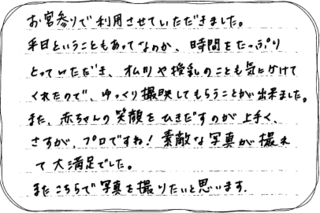 お宮参りで利用させていただきました。
平日ということもあってなのか、時間をたっぷり
とっていただき、オムツや授乳のことも気にかけて
くれたので、ゆっくり撮映してもらうことが出来ました。
また、赤ちゃんの笑顔をひきだすのが上手く、
さすが、プロですね！素敵な写真が撮れ
て大満足でした。
またこちらで写真を撮りたいと思います。